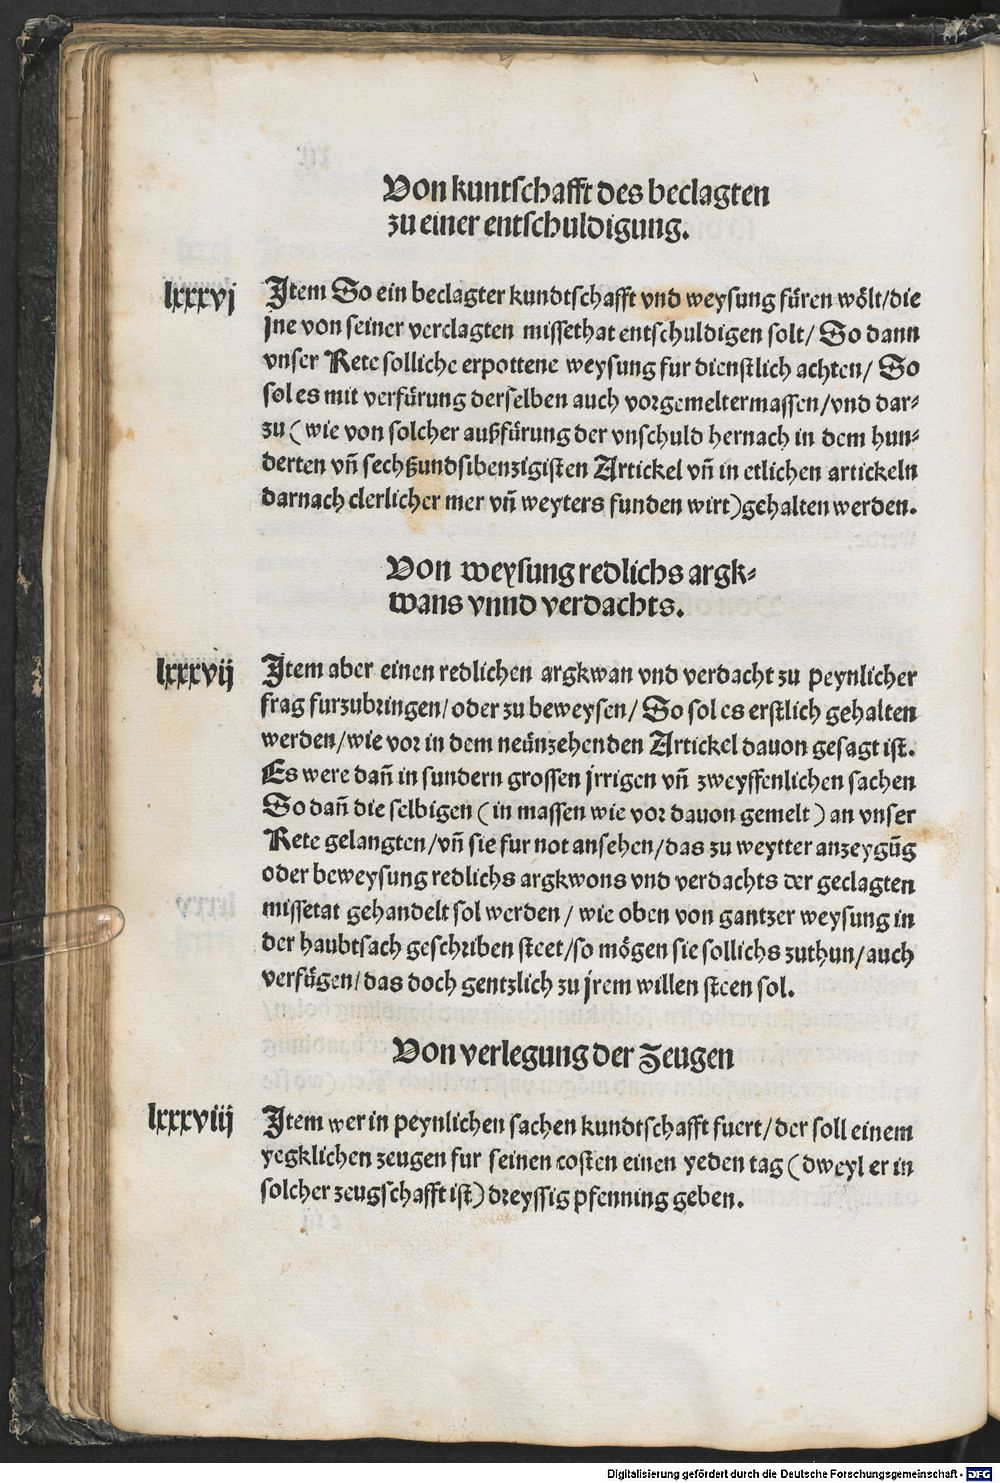 Von kuntschafft des beclagten
zu einer entschuldigung.
lxxxvj
Jtem So ein beclagter kundtschafft vnd weysung füren wölt/die
jne von seiner verclagten missethat entschuldigen solt/ So dann
vnser Rete solliche erpottene weysung fur dienstlich achten/ So
sol es mit verfürung derselben auch vorgemeltermassen/vnd dar⸗
zu (wie von solcher außfürung der vnschuld hernach in dem hun⸗
derten vn̄ sechßundsibenzigisten Artickel vn̄ in etlichen artickeln
darnach clerlicher mer vn̄ weyters funden wirt)gehalten werden.
Von weysung redlichs argk⸗
wans vnnd verdachts.
lxxxvij
Jtem aber einen redlichen argkwan vnd verdacht zu peynlicher
frag furzubringen/oder zu beweysen/ So sol es erstlich gehalten
werden/wie vor in dem neünzehenden Artickel dauon gesagt ist.
Es were dan̄ in sundern grossen jrrigen vn̄ zweyffenlichen sachen
So dan̄ die selbigen (in massen wie vor dauon gemelt) an vnser
Rete gelangten/vn̄ sie fur not ansehen/das zu weytter anzeygūg
oder beweysung redlichs argkwons vnd verdachts der geclagten
missetat gehandelt sol werden/ wie oben von gantzer weysung in
der haubtsach geschriben steet/so mögen sie sollichs zuthun/auch
verfügen/das doch gentzlich zu jrem willen steen sol.
Von verlegung der Zeugen
lxxxviij
Jtem wer in peynlichen sachen kundtschafft fuert/der soll einem
yegklichen zeugen fur seinen costen einen yeden tag (dweyl er in
solcher zeugschafft ist) dreyssig pfenning geben.
Digitalisierung gefördert durch die Deutsche Forschungsgemeinschaft - DFG